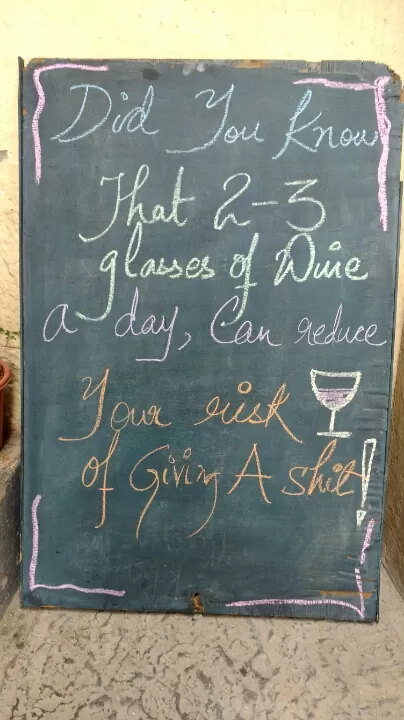 Did You Know
That 2-3
glasses of Wine
a day, Can reduce
Your risk
of Giving A shit!